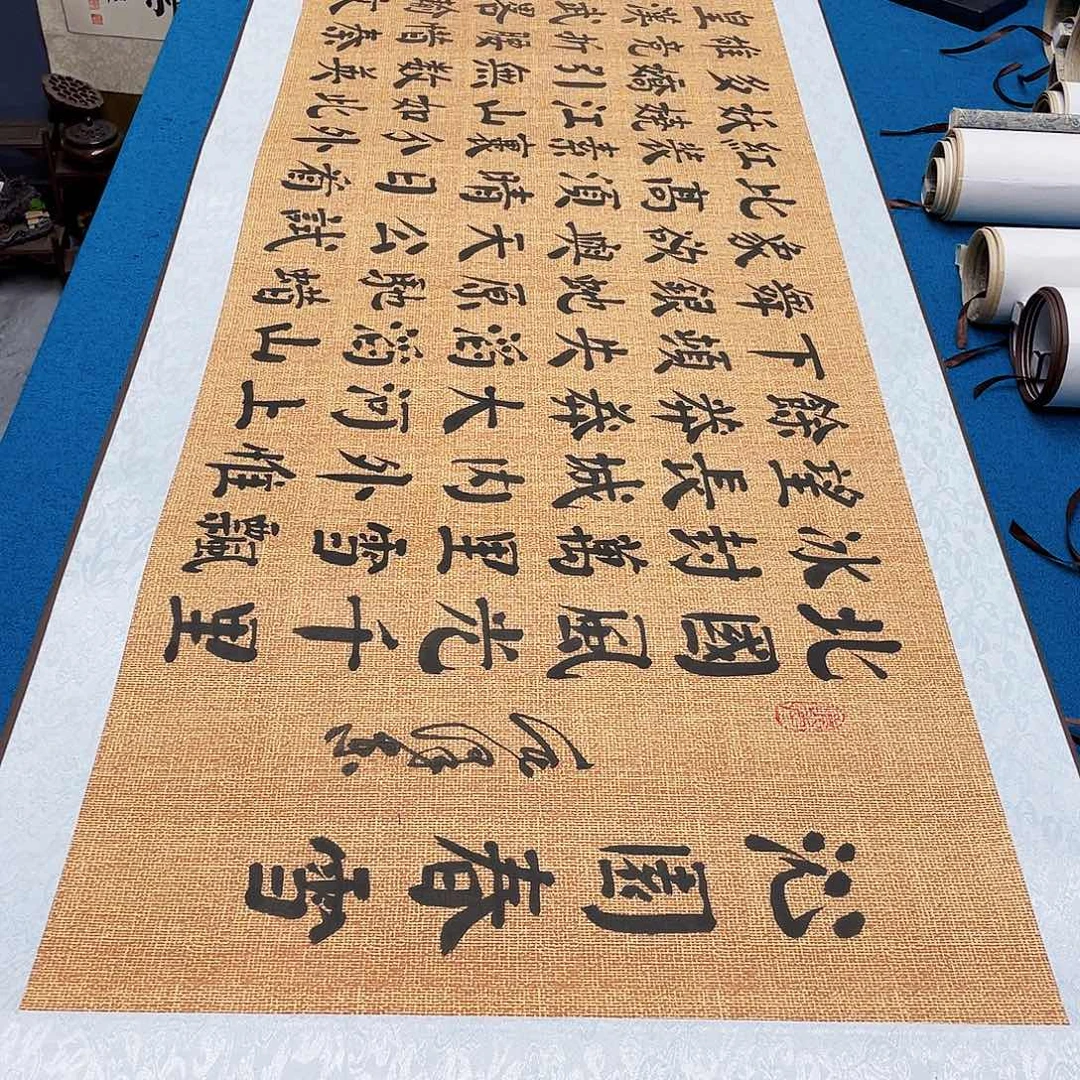 沁園春雪
北國風光千里
冰封萬里雪飄
望長城內外惟
餘莽莽大河上
下頓失滔滔山
舞銀蛇原馳蠟
象欲與天公試
比高須晴日看
紅裝素裹分外
妖嬈江山如此
多嬌引無數英
雄競折腰惜秦
皇漢武畧輸文